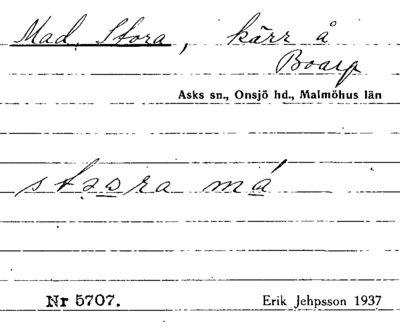 Mad, Stora, kärr å
Boarp
Asks sn., Onsjö hd., Malmöhus län
má
Nr 5707.
Erik Jehpsson 1937